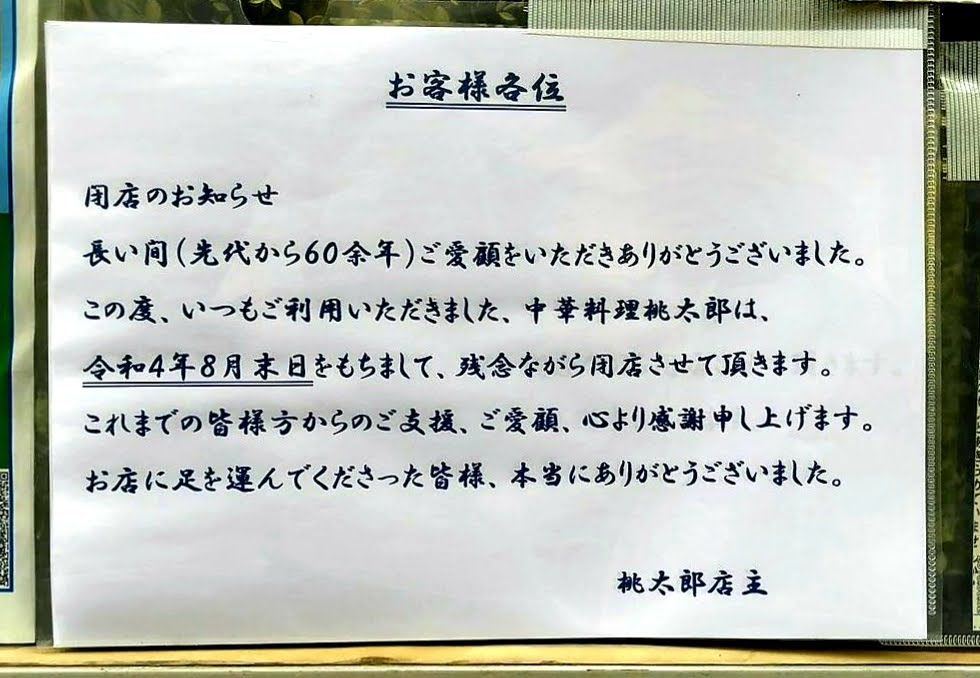 お客様各位
閉店のお知らせ
長い間(先代から60余年)ご愛顧をいただきありがとうございました。
この度、いつもご利用いただきました、中華料理桃太郎は、
令和4年8月末日をもちまして、残念ながら閉店させて頂きます。
これまでの皆様方からのご支援、ご愛顧、心より感謝申し上げます。
お店に足を運んでくださった皆様、本当にありがとうございました。
桃太郎店主